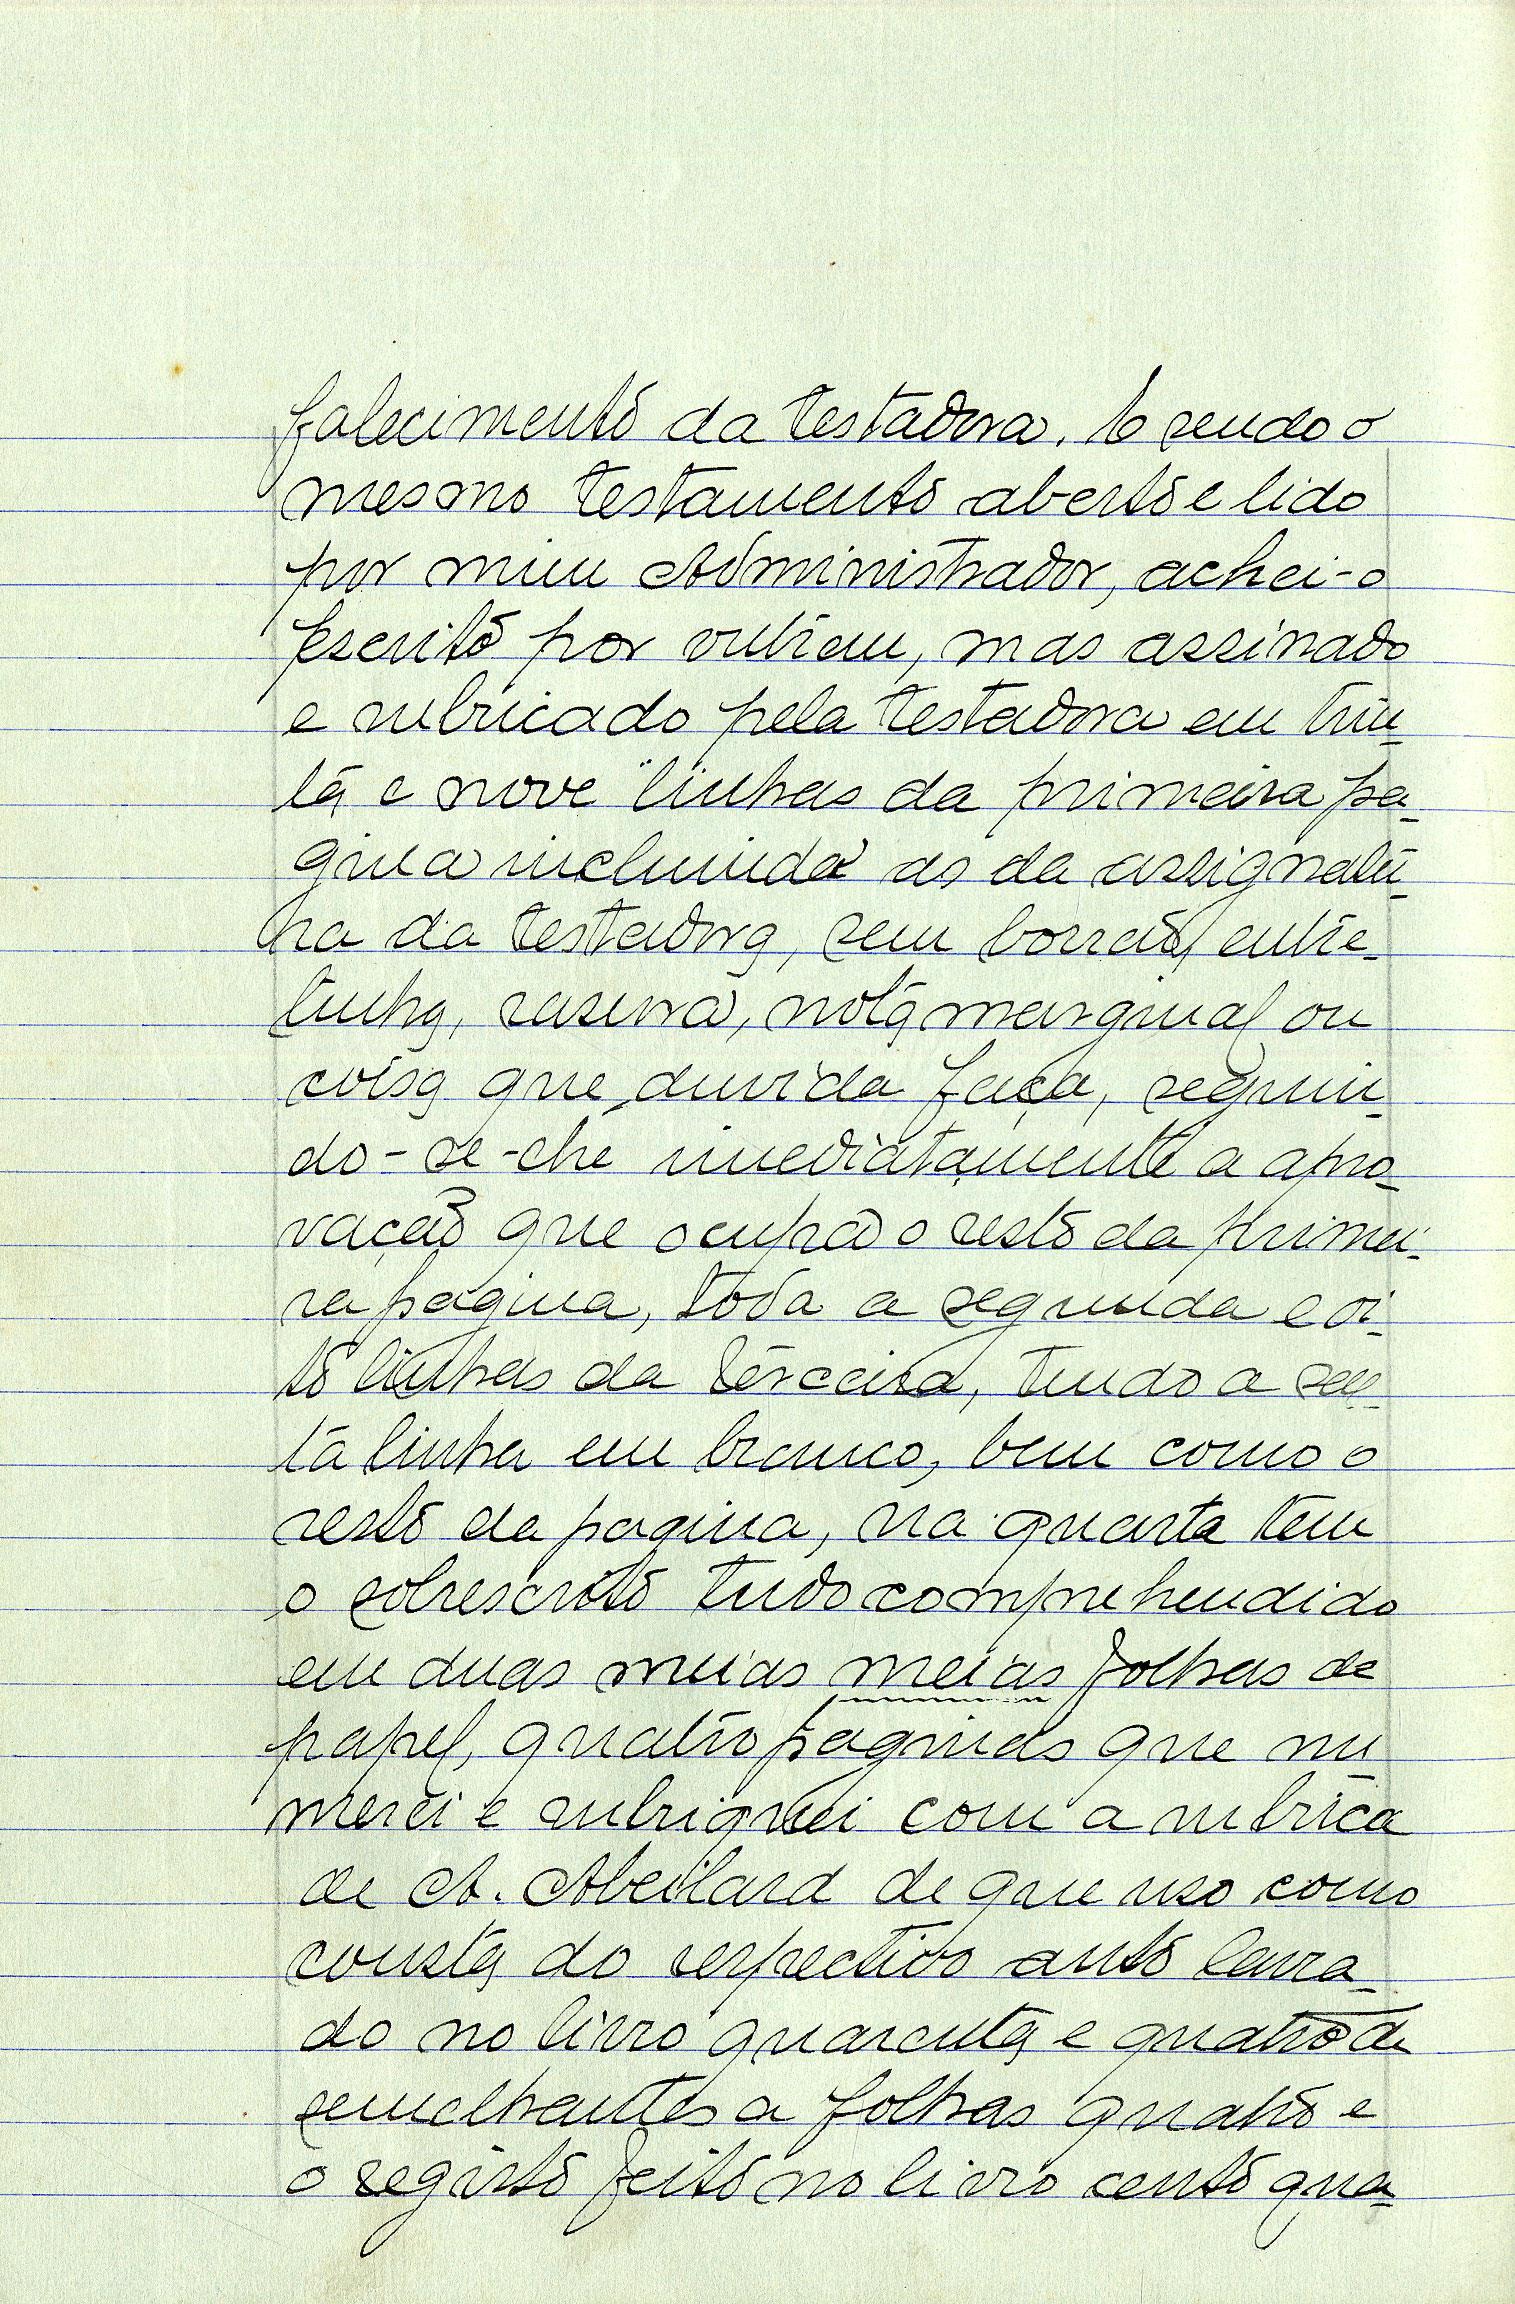 falecimento da testadora. E sendo o
mesmo testamento aberto e lido
por mim Administrador, achei-o
escrito por outrem, mas assinado
e rubricado pela testadora em trin-
ta e nove linhas da primeira pa-
gina incluida as da assignatu-
ra da testadora, sem borrão, entre-
linha, rasura, nota marginal ou
coisa que duvida faça, seguin-
do-se-lhe imediatamente a apro-
vação que ocupa o resto da primei-
ra pagina, toda a segunda e oi-
to linhas da terceira, tendo a
ta linha em branco, bem como o
resto da pagina, na quarta tem
o sobrescrito tudo comprehendido
em duas meias meias folhas de
papel, quatro paginas que nu
merei e rubriquei com a rubrica
de A. Abeilard de que uso como
consta do respectivo auto lavra-
do no livro quarenta e quatro de
semelhantes a folhas quatro e
o registo feito no livro cento qua-